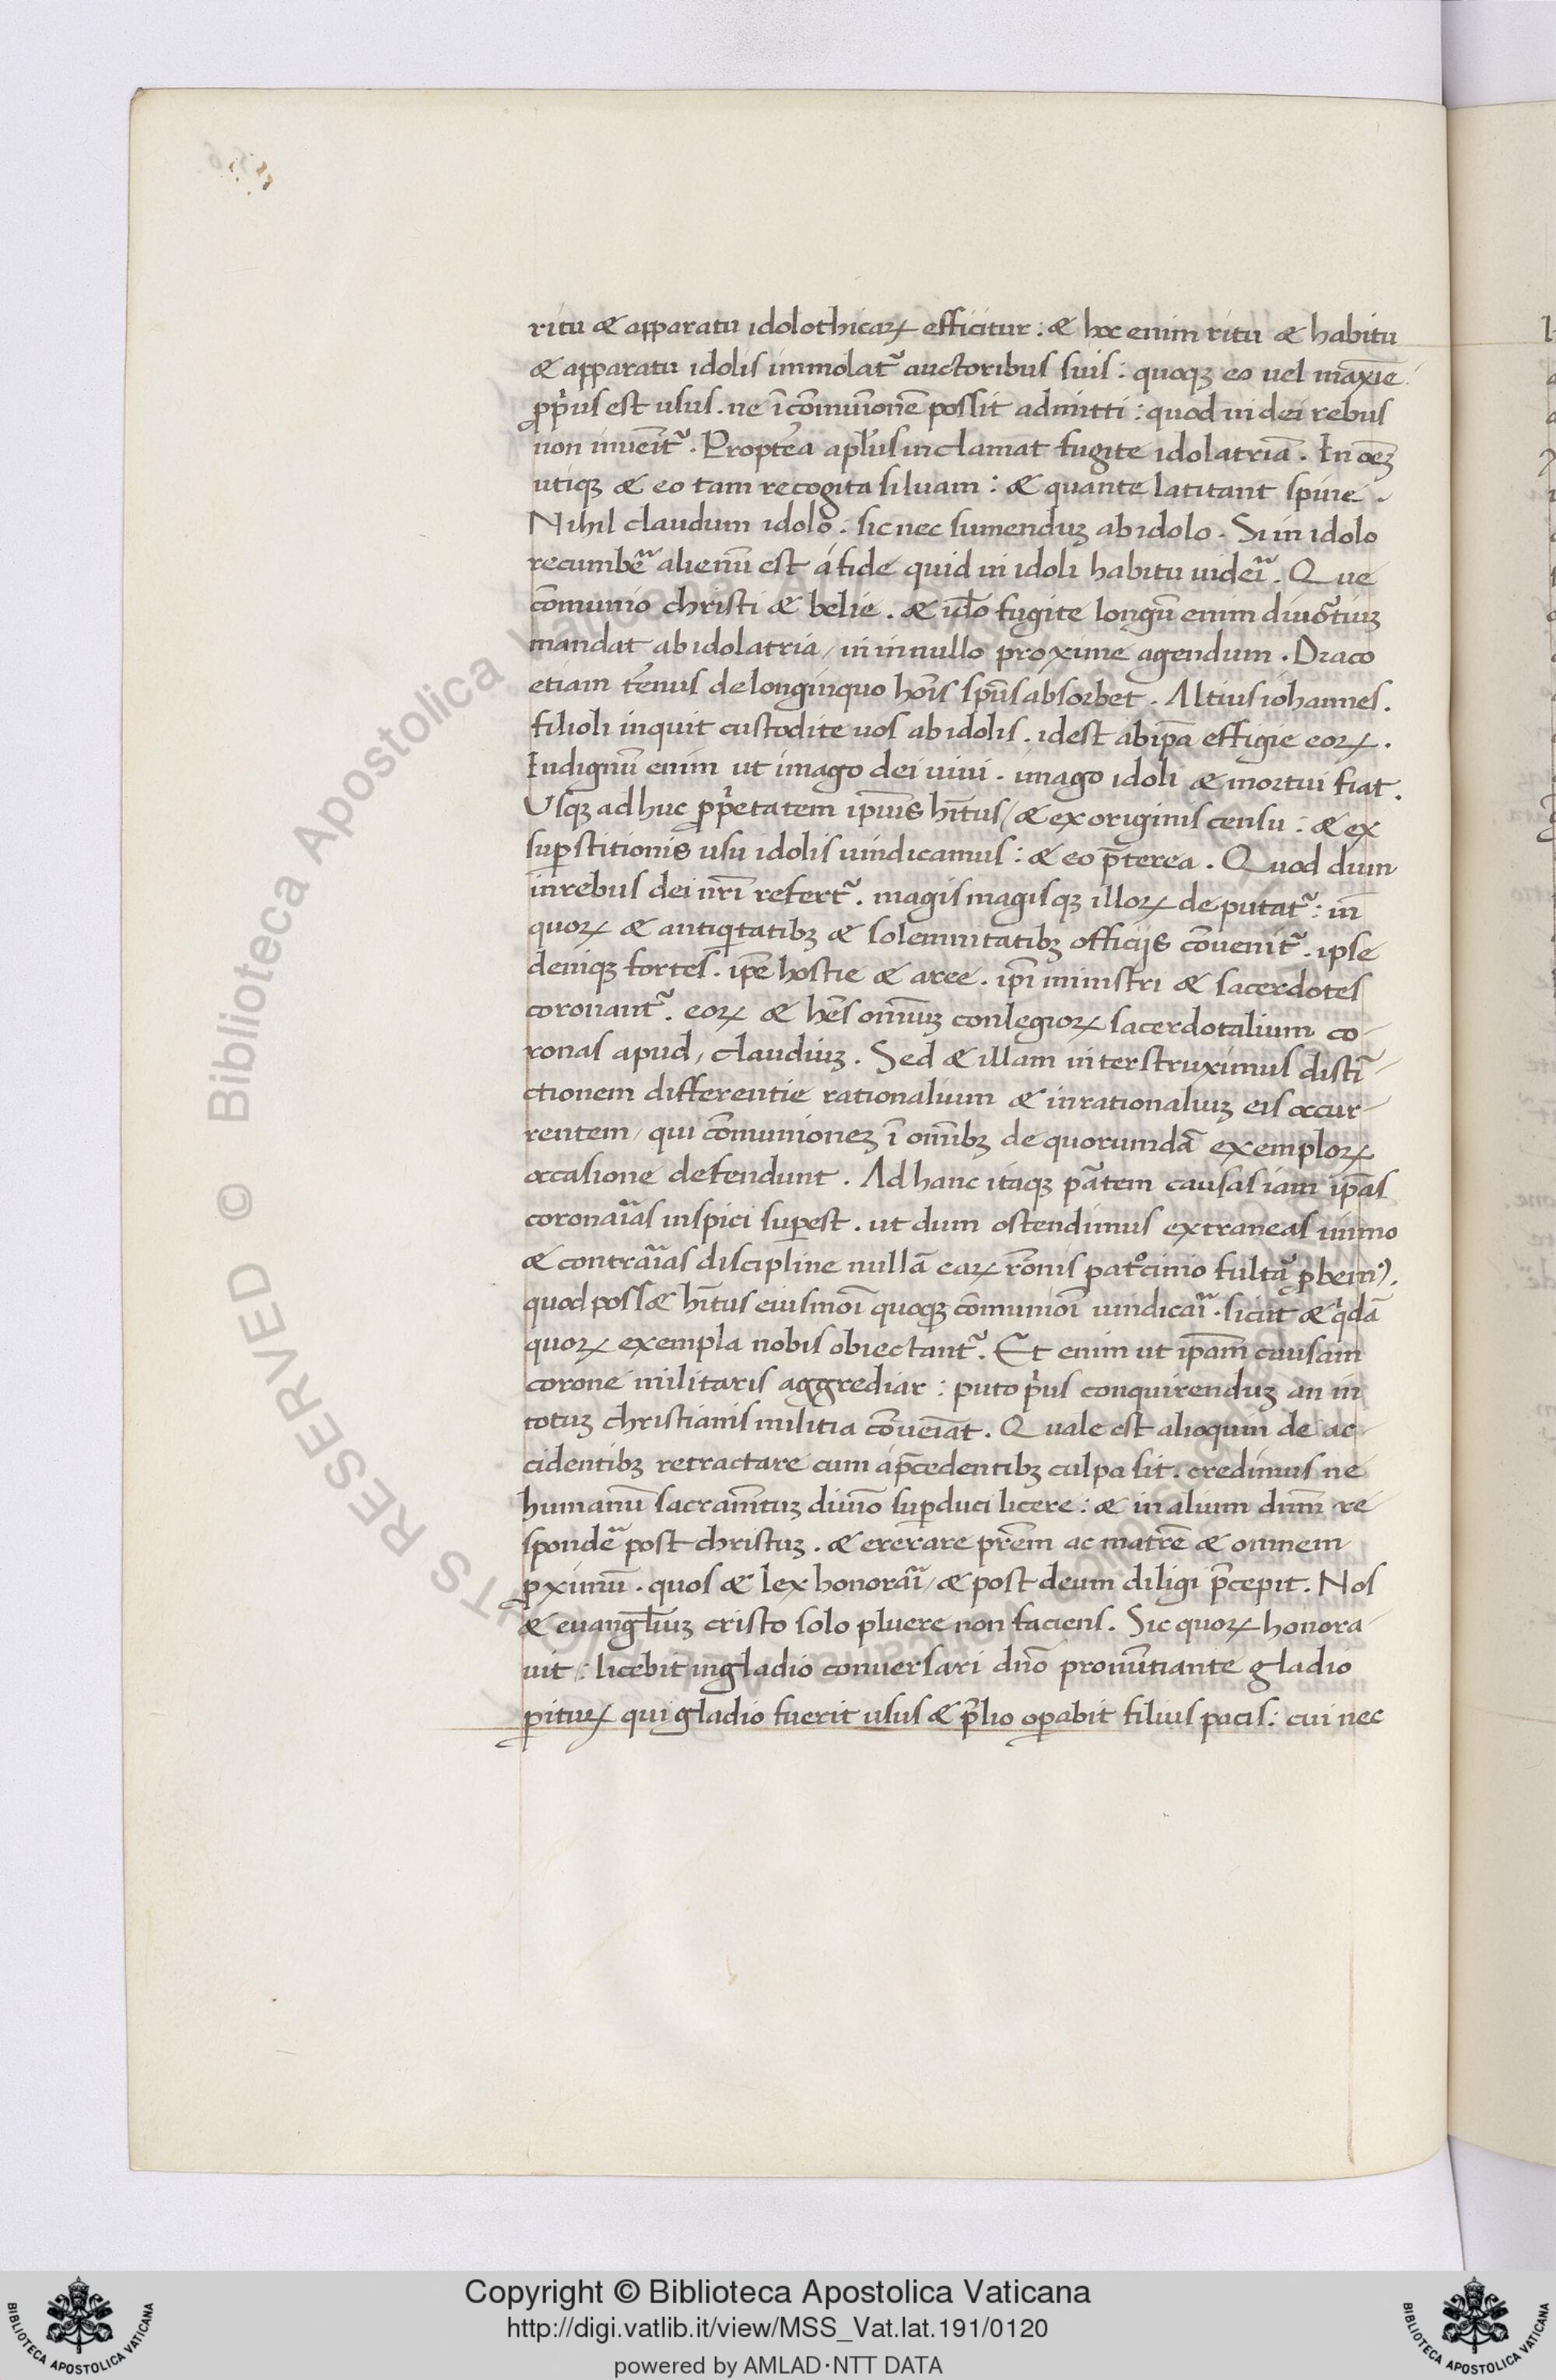 ritu & apparatu idolothicaꝝ efficitur : & hoc enim ritu & habitu
& apparatu idolis immolat᷑ auctoribus suis : quoqꝫ eo uel maxīe
ꝓp̄ius est usus . ne ī cōmunionē possit admitti : quod in dei rebus
non inuenīt᷑ . Propterea apl̄us inclamat fugite idolatriā . In oēꝫ
utiqꝫ & eo tam recogita siluam : & quante latitant spine .
Nihil claudum idolo . sic nec sumenduꝫ ab idolo . Si in idolo
recumbē᷑ alienū est á fide quid in idoli habitu uideri᷑ . Que
cōmunio christi & belie . & id̄o fugite longū enim diuortiuꝫ
mandat ab idolatria / in in nullo proxime agendum . Draco
etiam t̄enus de longinquo hoīs sp̄us absorbet . Altius iohannes .
filioli inquit custodite uos ab idolis . idest ab ip̄a effigie eoꝝ .
Indignū enim ut imago dei uiui . imago idoli & mortui fiat .
Usqꝫ adhuc ꝓp̄etatem ip̄ius hītus / & ex originis censu : & ex
suꝑstitionis usu idolis uindicamus : & eo p̄terea . Quod dum
in rebus dei nr̄i refert᷑ . magis magisqꝫ illoꝝ deputat᷑ : in
quoꝝ & antiqitatibꝫ & solemnitatibꝫ officijs cōuenit᷑ . ipse
deniqꝫ fortes . ip̄e hostie & aree . ip̄i ministri & sacerdotes
coronant᷑ . eoꝝ & hēs omniuꝫ conlegioꝝ sacerdotalium co-
ronas apud / claudiuꝫ . Sed & illam interstruximus disti-
ctionem differentie rationalium & inrationaliuꝫ eis occur-
rentem / qui cōmunioneꝫ ī omībꝫ de quorumdā exemploꝝ
occasione defendunt . Ad hanc itaqꝫ ptem causas iam ip̄as
coronarias inspici suꝑest . ut dum ostendimus extraneas immo
& contrarias discipline nullā eaꝝ rōnis patrocinio fultā
quod poss& hītus eiusmōi quoqꝫ cōmunioī uindicari . sicut & qdā
quoꝝ exempla nobis obiectant᷑ . Et enim ut ip̄am causam
corone militaris aggrediar : puto p̄us conquirenduꝫ an in
totuꝫ christianis militia cōueiat . Quale est alioquin de ac-
cidentibꝫ retractare cum á p̄cedentibꝫ culpa sit . credimus ne
humanū sacramtuꝫ diuīo suꝑduci licere : & in alium dnm̄ re-
sponde post christuꝫ . & ererare pr̄em ac matrē & omnem
ꝓximū . quos & lex honorari / & post deum diligi p̄cepit . Nos
& euangl̄iuꝫ cristo solo pluere non faciens . Sic quoꝝ honora-
uit : licebit in gladio conuersari dn̄o pronūtiante gladio
ꝑituꝝ qui gladio fuerit usus & p̄lio oꝑabit filius pacis : cui nec
Copyright © Biblioteca Apostolica Vaticana
http://digi.vatlib.it/view/MSS_Vat.lat.191/0120
powered by AMLAD·NTT DATA